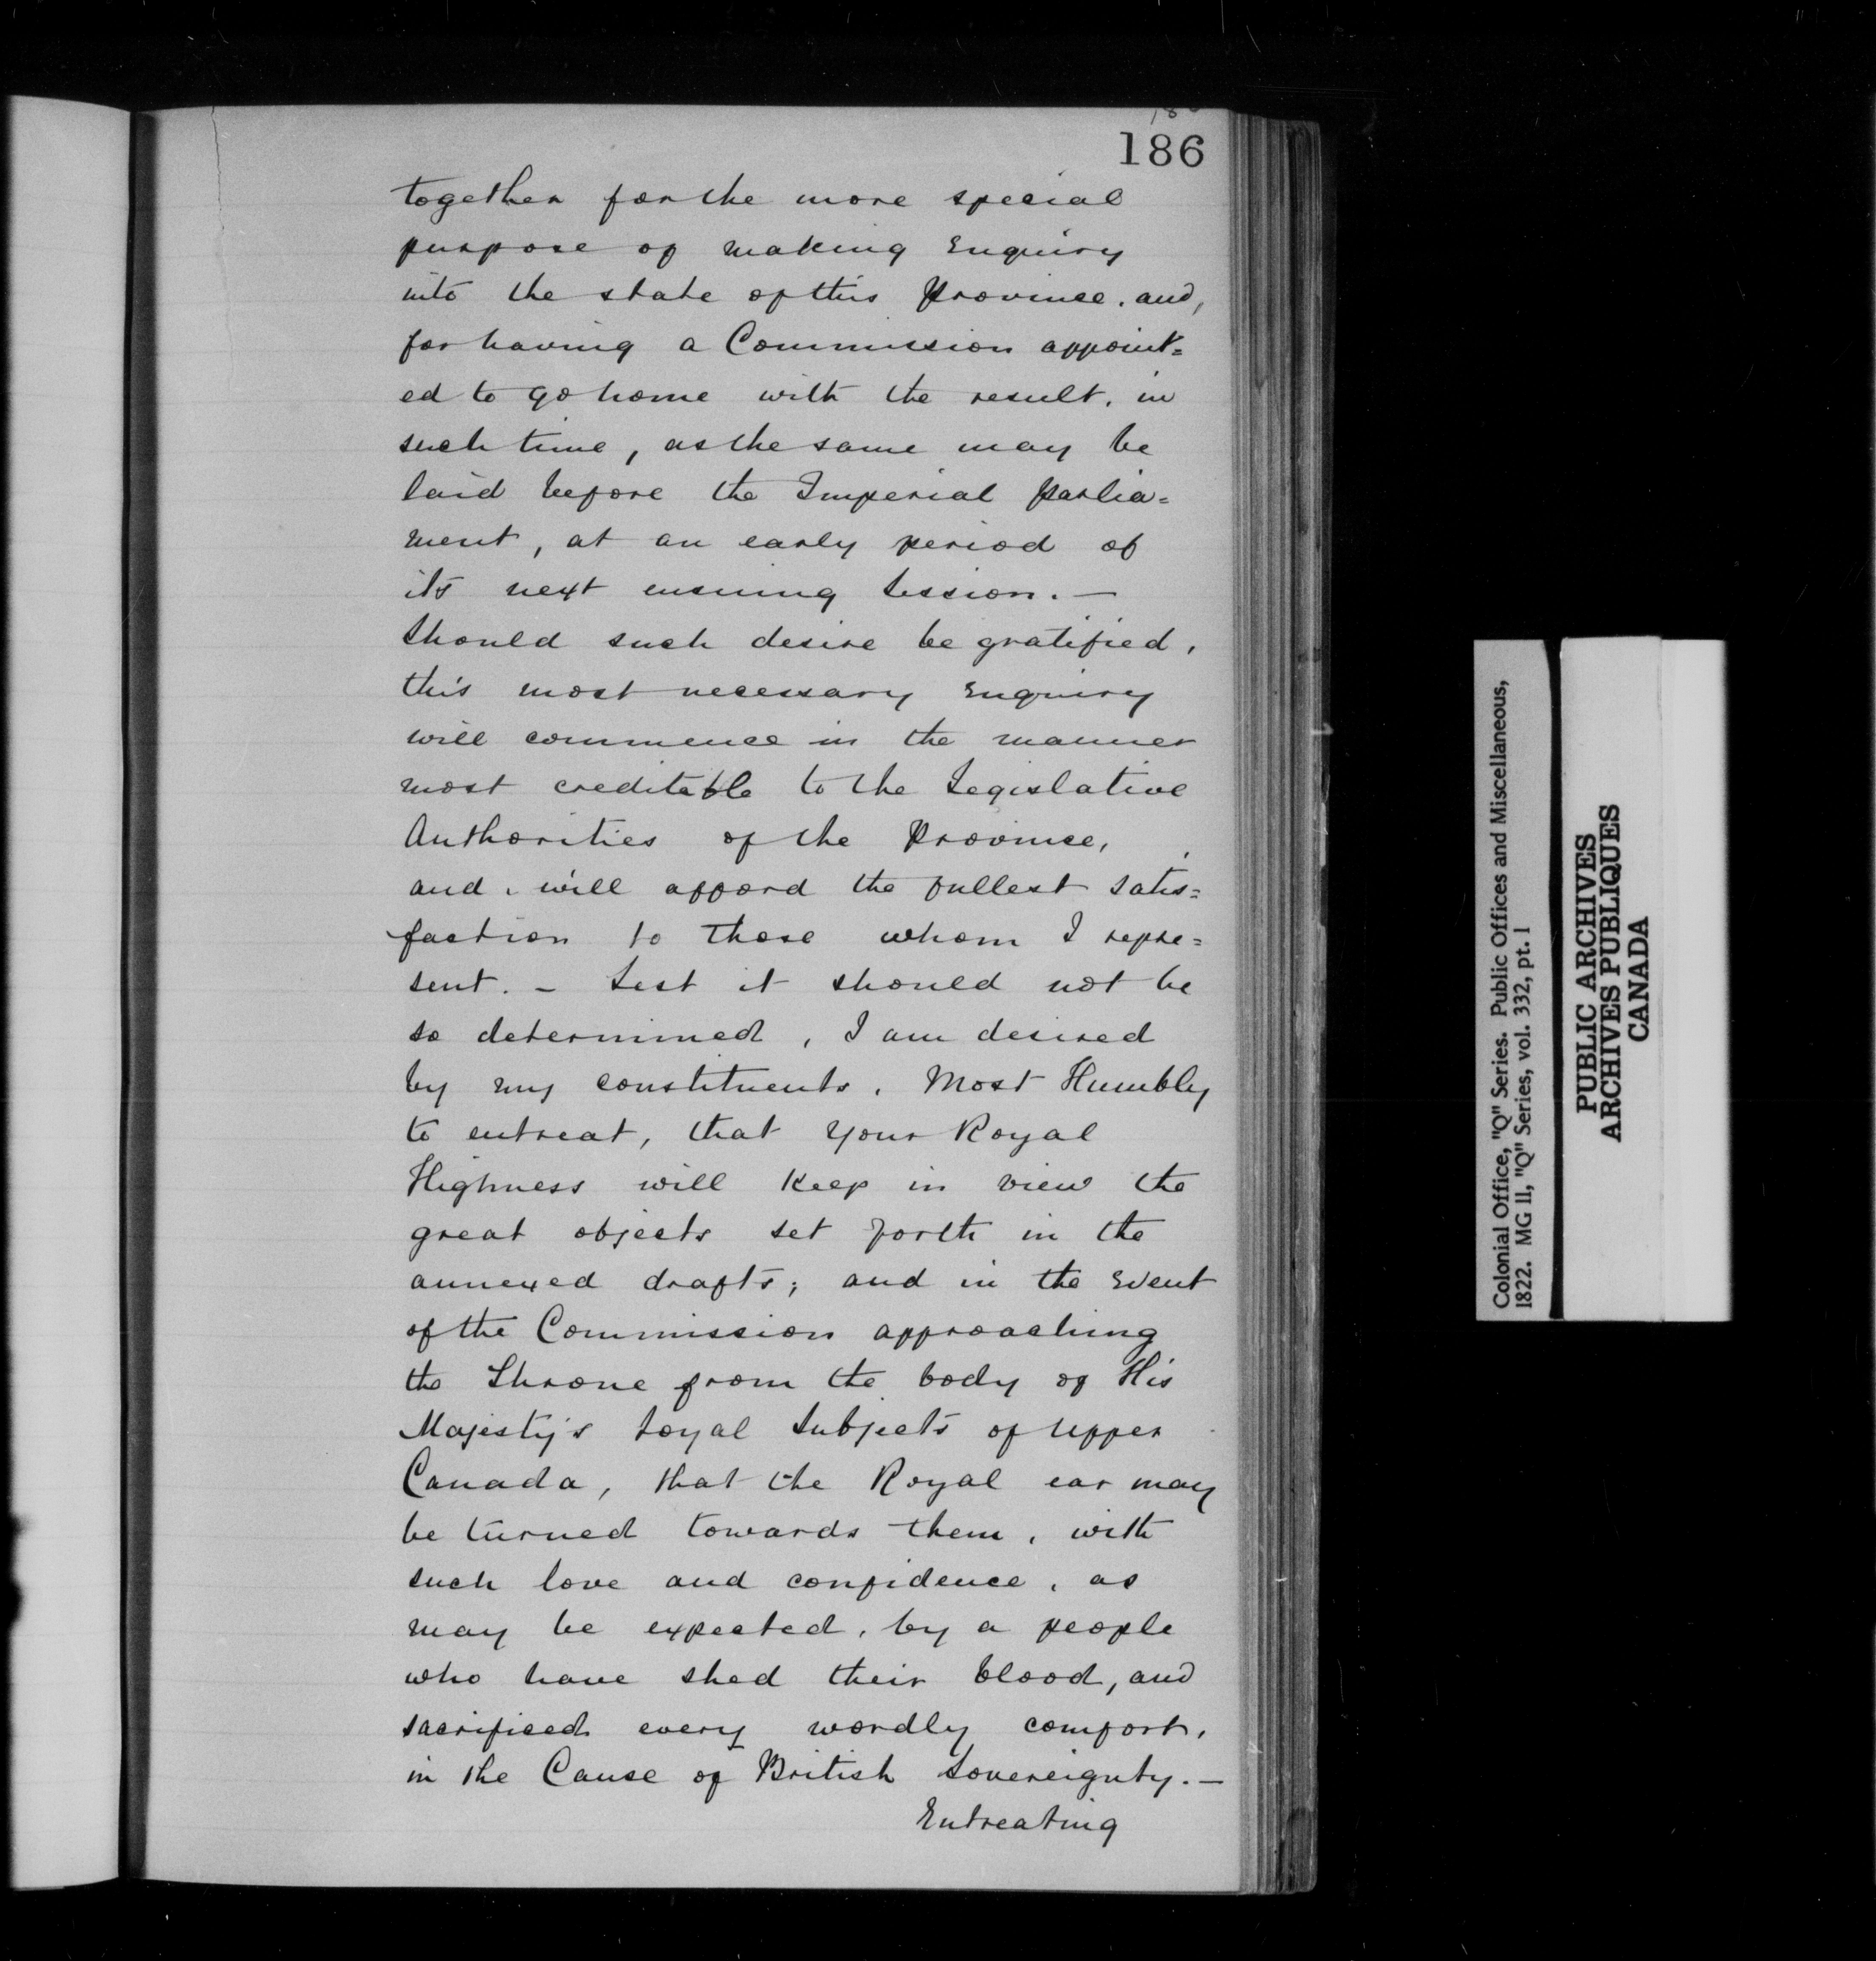 186
together for the more special
purpose of making Enquiry
into the state of this Province, and,
for having a Commission appoint=
ed to go home with the result, in
such time, as the same may be
laid before the Imperial Parlia=
ment, at an early period of
its next ensuing Session. —
Should such desire be gratified,
this most necessary Enquiry
will commence in the manner
most creditable to the Legislative
Authorities of the Province,
and, will afford the fullest satis=
faction to those whom I repre=
sent. — Lest it should not be
so determined, I am desired
by my constituents, Most Humbly
to entreat, that Your Royal
Highness will keep in view the
great objects set forth in the
annexed drafts; and in the Event
of the Commission approaching
the Throne from the body of His
Majesty's Loyal Subjects of Upper
Canada, that the Royal ear may
be turned towards them, with
such love and confidence, as
may be expected, by a people
who have shed their blood, and
sacrificed every wordly comfort,
in the Cause of British Sovereignty. —
Entreating
Colonial Office, "Q" Series. Public Offices and Miscellaneous,
1822. MG 11, "Q" Series, vol. 332, pt. 1
PUBLIC ARCHIVES
ARCHIVES PUBLIQUES
CANADA